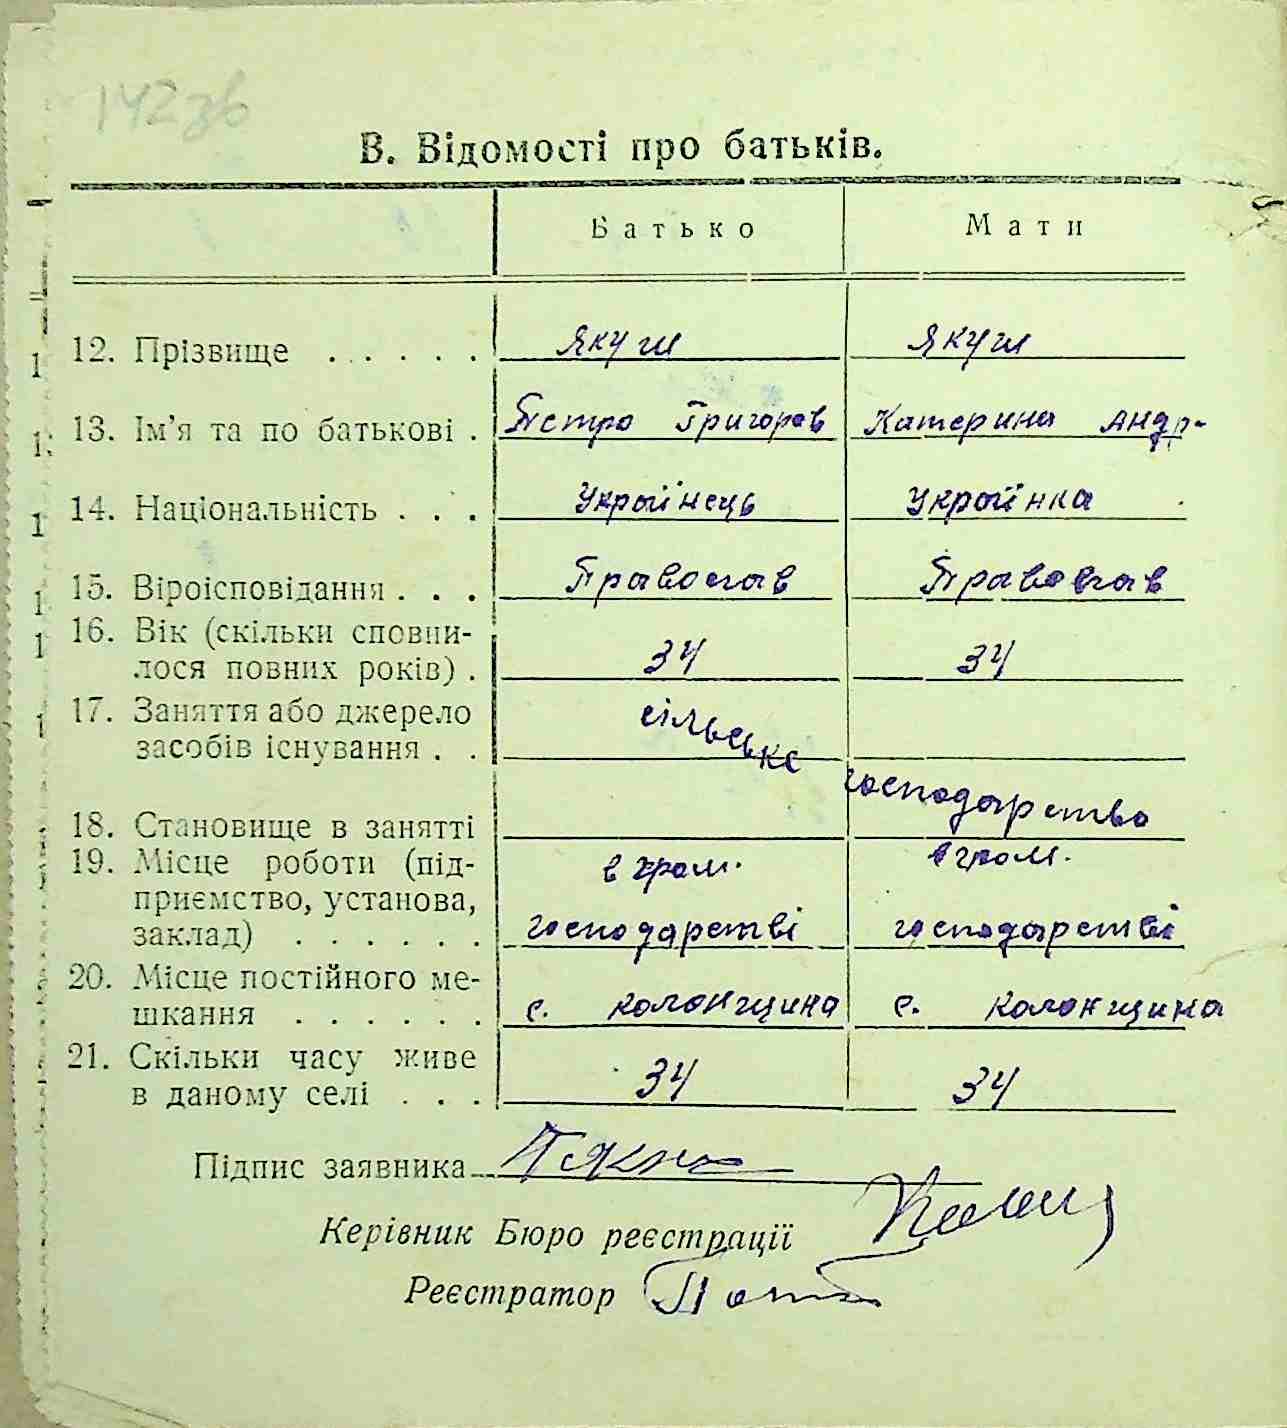 142зв
В. Відомості про батьків.
Батько Мати
12. Прізвище . . . . . Якуш Якуш
13. Ім'я та по батькові . Петро Григоров Катерина Андр-
14. Національність . . . Українець Українка
15. Віроісповідання . . . Православ Православ
16. Вік (скільки сповни-
лося повних років) . 34 34
17. Заняття або джерело сільське
засобів існування . .
господарство
18. Становище в занятті
19. Місце роботи (під- в гром. в гром.
приємство, установа,
заклад) . . . . . . господарстві господарстві
20. Місце постійного ме-
шкання . . . . . . с. Колонщина с. Колонщина
21. Скільки часу живе
в даному селі . . . 34 34
Підпис заявника
Керівник Бюро реєстрації
Реєстратор